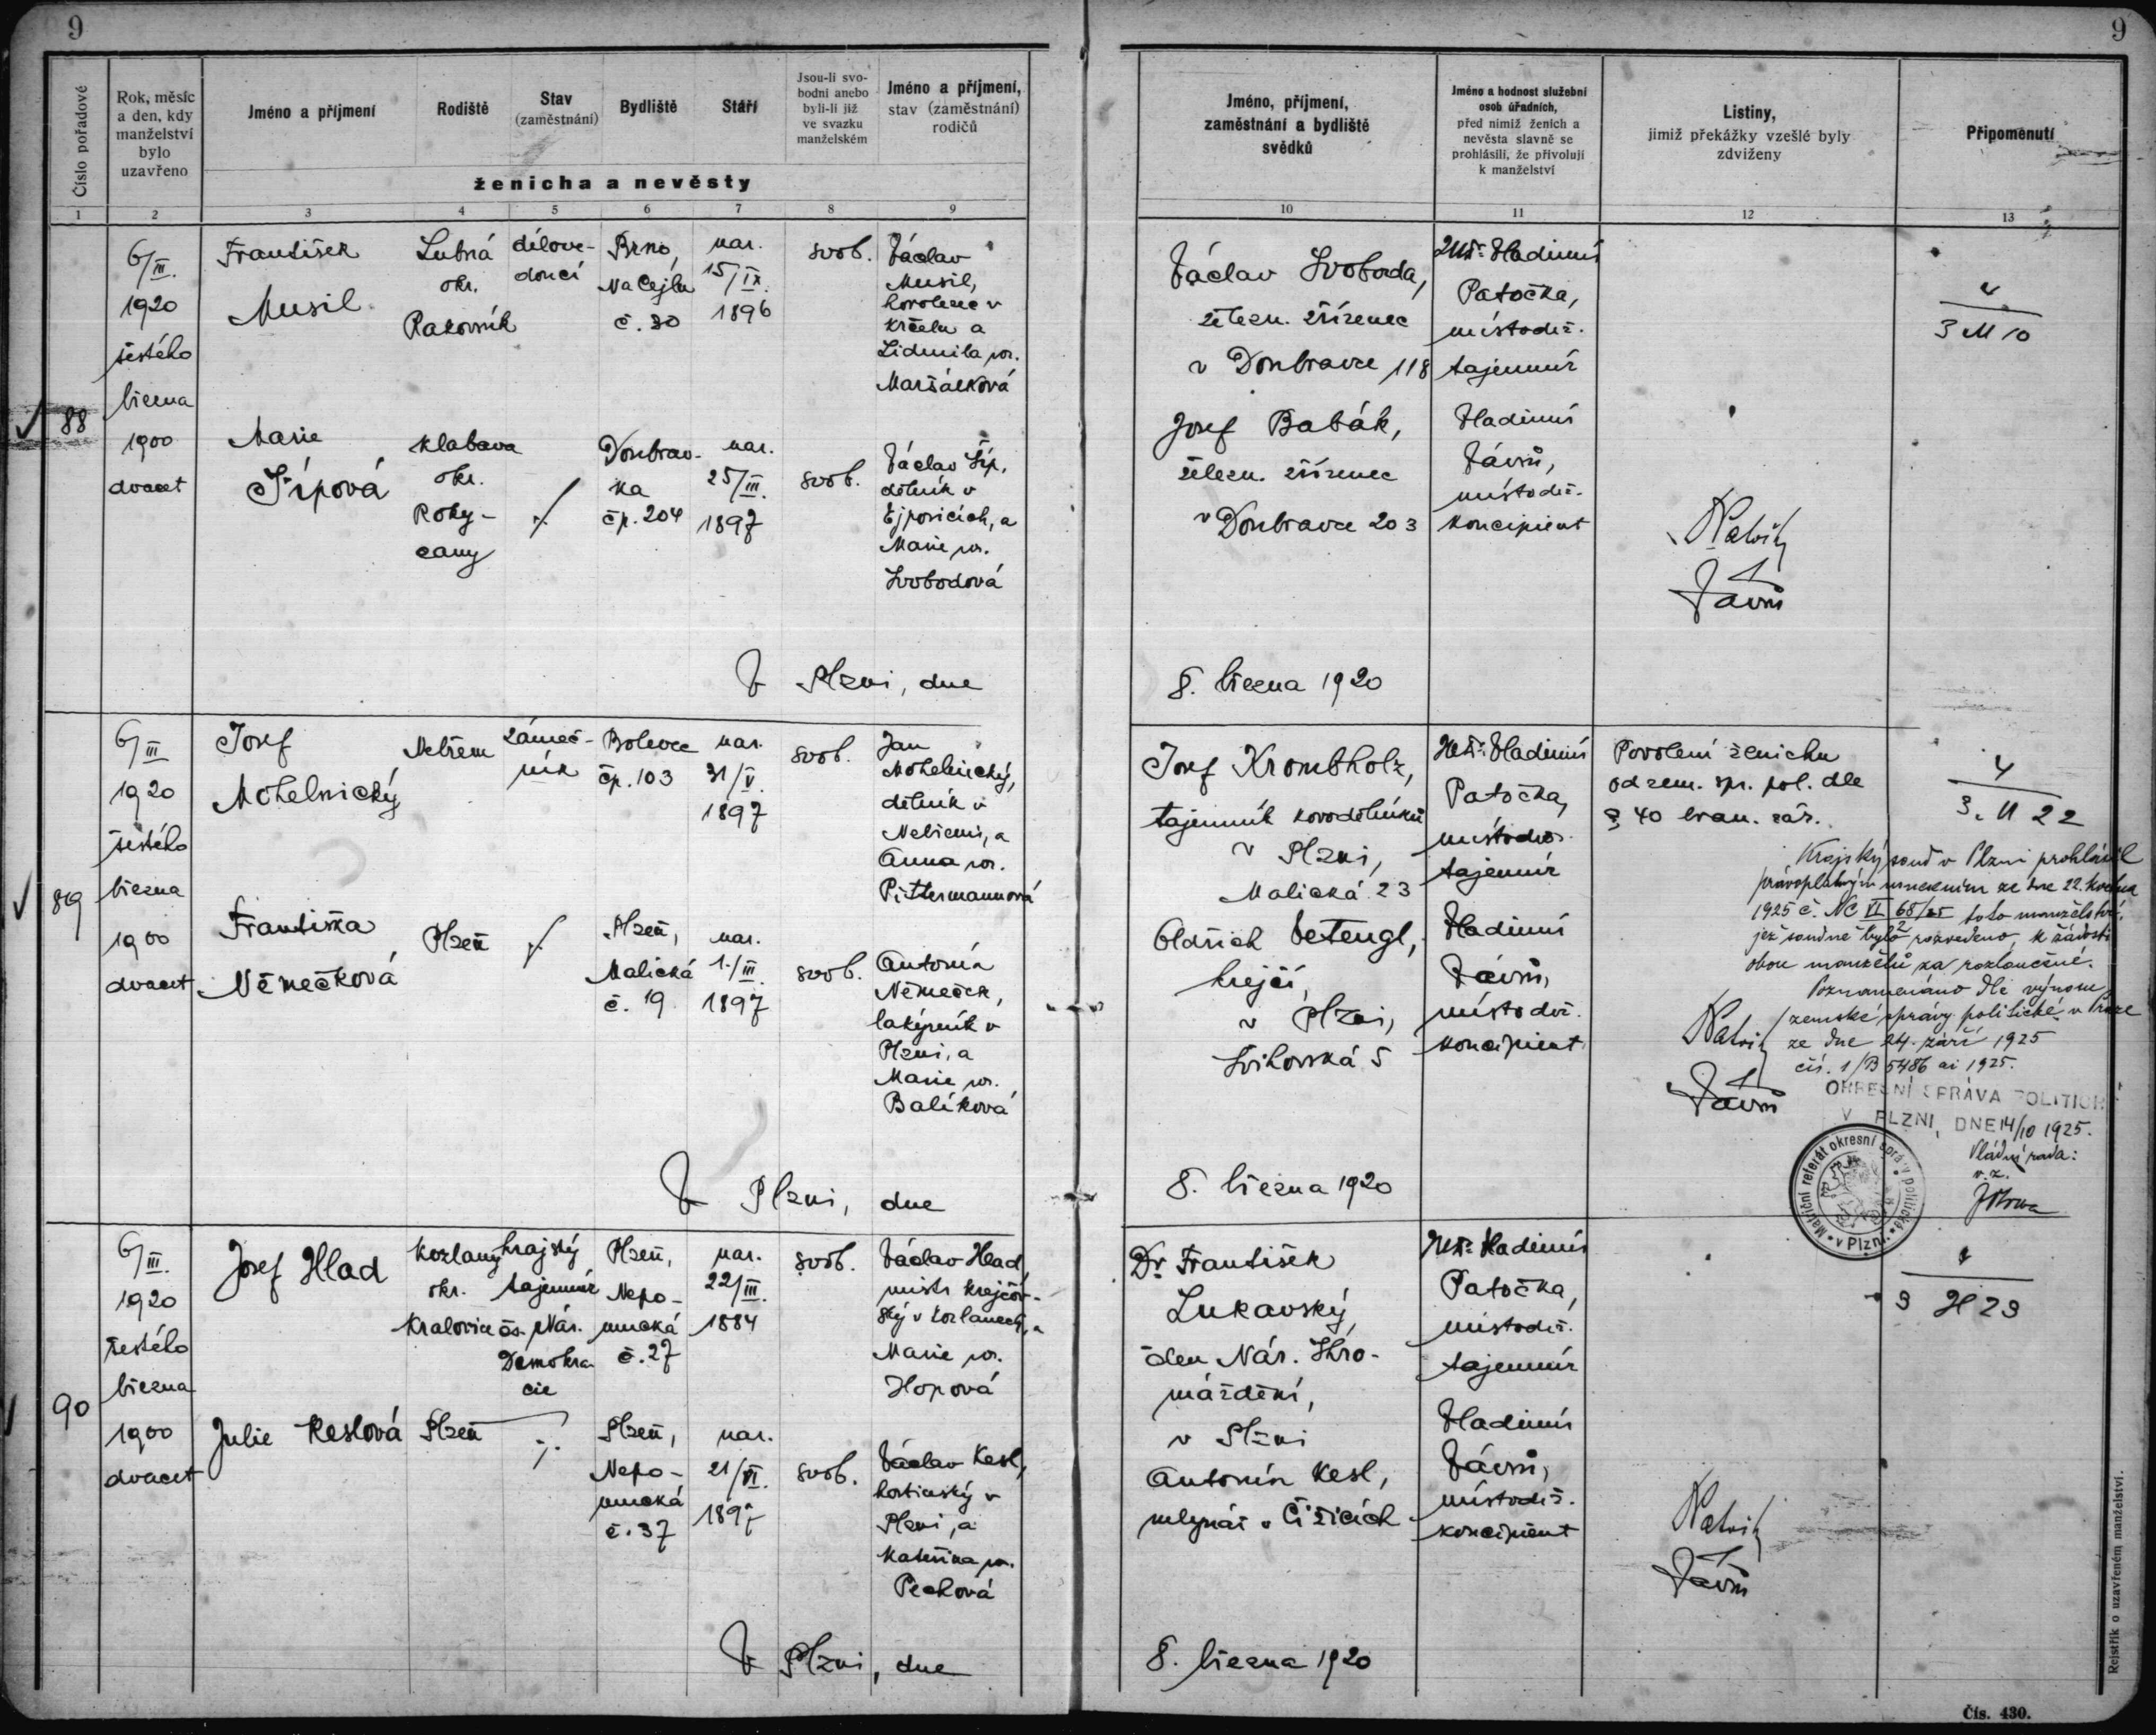 9
9
Číslo pořadové
Rok, měsíc
a den, kdy
manželství
bylo
uzavřeno
Jméno a příjmení
Rodiště
Stav
(zaměstnání)
Bydliště
Stáří
Jsou-li svo-
bodni anebo
byli-li již
ve svazku
manželském
Jméno a příjmení,
stav (zaměstnání)
rodičů
ženicha a nevěsty
Jméno, příjmení,
zaměstnání a bydliště
svědků
Jméno a hodnost služební
osob úřadních,
před nimiž ženich a
nevěsta slavně se
prohlásili, že přivolují
k manželství
Listiny,
jimiž překážky vzešlé byly
zdviženy
Připomenutí
1 2 3 4 5 6 7 8 9 10 11 12 13
88
6/III.
1920
šestého
března
1900
dvacet
František
Musil
Lubná
okr.
Rakovník
dílove-
doucí
Brno,
Na Cejlu
č. 30
nar.
15/IX.
1896
svob.
Václav
Musil,
horolezec v
Krčelu a
Lidmila roz.
Maršálková
Marie
Šípová
Klabava
okr.
Roky-
cany
Doubrav-
ka
čp. 204
nar.
25/III.
1897
svob.
Václav Šíp,
dělník v
Ejpovicích, a
Marie roz.
Svobodová
Václav Svoboda,
železn. zřízenec
v Doubravce 118
Josef Babák,
železn. zřízenec
v Doubravce 203
JUDr. Vladimír
Patočka,
místodrž.
tajemník
Vladimír
Vávrů,
místodrž.
koncipient
Vávrů
3 M 10
V Plzni, dne
8. března 1920
89
6/III
1920
šestého
března
1900
dvacet
Josef
Mohelnický
Nebřem
zámeč-
ník
Bolevec
čp. 103
nar.
31/V.
1897
svob.
Jan
Mohelnický,
dělník v
Nebřemi, a
Anna roz.
Pittermannová
Františka
Němečková
Plzeň
Plzeň,
Malická
č. 19
nar.
1./III.
1897
svob.
Antonín
Němeček,
lakýrník v
Plzni, a
Marie roz.
Balíková
Josef Krombholz,
tajemník kovodělníků
v Plzni,
Malická 23
Oldřich Vetengl,
krejčí,
v Plzni,
Švihovská 5
JUDr. Vladimír
Patočka,
místodrž.
tajemník
Vladimír
Vávrů,
místodrž.
koncipient
Povolení ženichu
od zem. spr. pol. dle
§ 40 bran. zák.
Vávrů
4
3. M 22
Krajský soud v Plzni prohlásil
právoplatným usnesením ze dne 22. května
1925 č. NC VI 65/25 toto manželství,
jež soudně bylo rozvedeno, k žádosti
obou manželů za rozloučené.
Poznamenáno dle výnosu
zemské správy politické v Praze
ze dne 24. září 1925
čís. 1/B 5486 ai 1925.
OKRESNÍ SPRÁVA POLITICKÁ
V PLZNI, DNE 14/10 1925.
Vládní rada:
v. z.
Matriční referát okresní správy politické v Plzni.
V Plzni, dne
8. března 1920
90
6/III.
1920
šestého
března
1900
dvacet
Josef Hlad
Kozlany
okr.
Kralovice
krajský
tajemník
čs. Nár.
Demokra-
cie
Plzeň,
Nepo-
mucká
č. 27
nar.
22/III.
1884
svob.
Václav Hlad,
mistr krejčov-
ský v Kozlanech, a
Marie roz.
Hopová
Julie Keslová
Plzeň
Plzeň,
Nepo-
mucká
č. 37
nar.
21/VI.
1897
svob.
Václav Kesl,
hostinský v
Plzni, a
Kateřina roz.
Pechová
Dr František
Lukavský,
člen Nár. Shro-
máždění,
v Plzni
Antonín Kesl,
mlynář v Čižicích
JUDr. Vladimír
Patočka,
místodrž.
tajemník
Vladimír
Vávrů,
místodrž.
koncipient
Vávrů
3 H 23
V Plzni, dne
8. března 1920
Rejstřík o uzavřeném manželství.
Čís. 430.